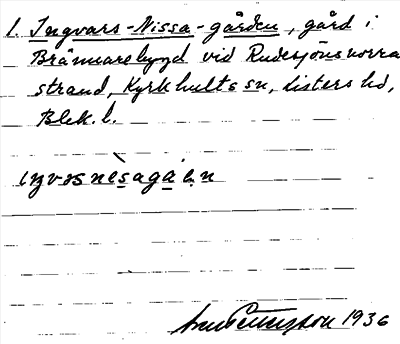 1. Ingvars-Nissa-gården, gård i
Brännarebygd vid Rudesjöns norra
strand, Kyrkhults sn, Listers hd,
Blek. l.
1936